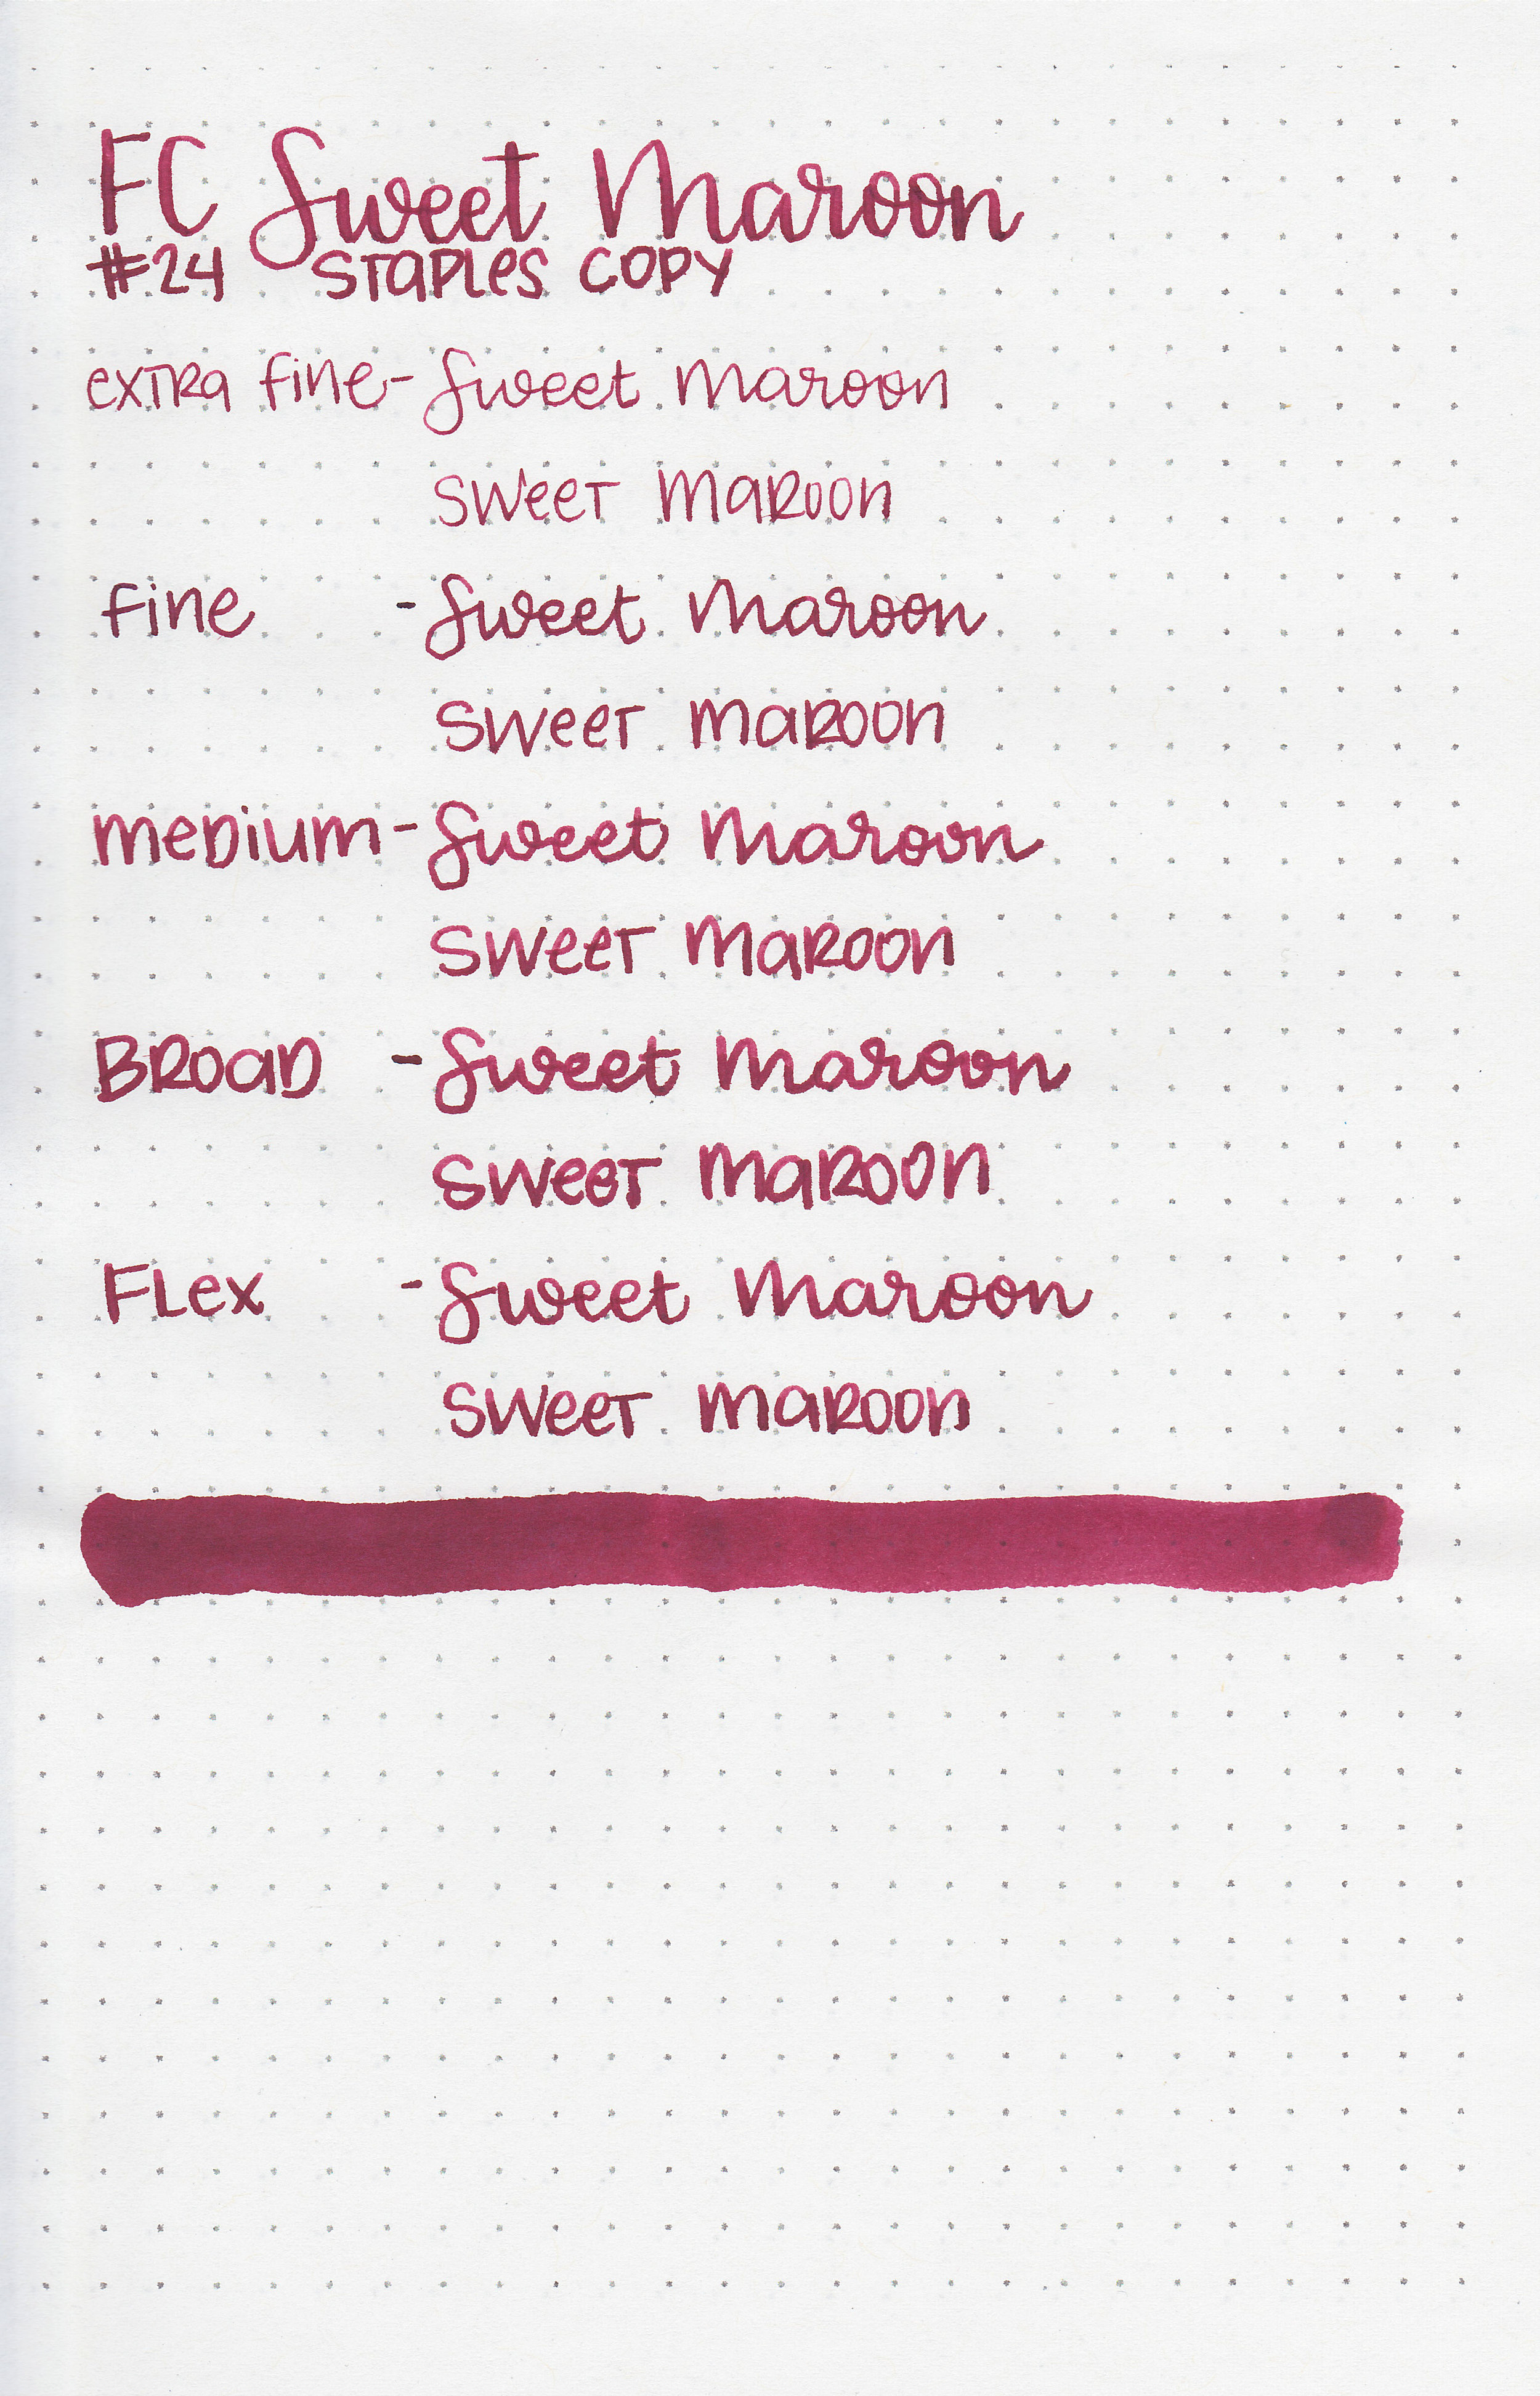 FC Sweet Maroon
#24 Staples Copy
extra fine - Sweet Maroon
Sweet Maroon
Fine - Sweet Maroon
Sweet Maroon
Medium - Sweet Maroon
Sweet Maroon
Broad - Sweet Maroon
Sweet Maroon
Flex - Sweet Maroon
Sweet Maroon